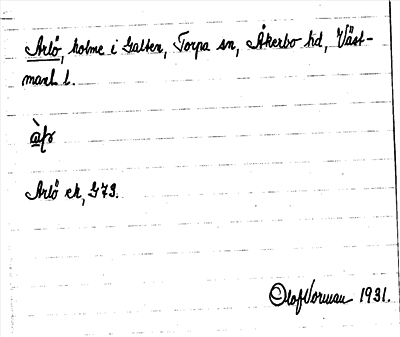 Arlö, holme i Galten, Torpa sn, Åkerbo hd, Väst-
manl. l.
Arlö ek, G73.
Olof Norman 1931.